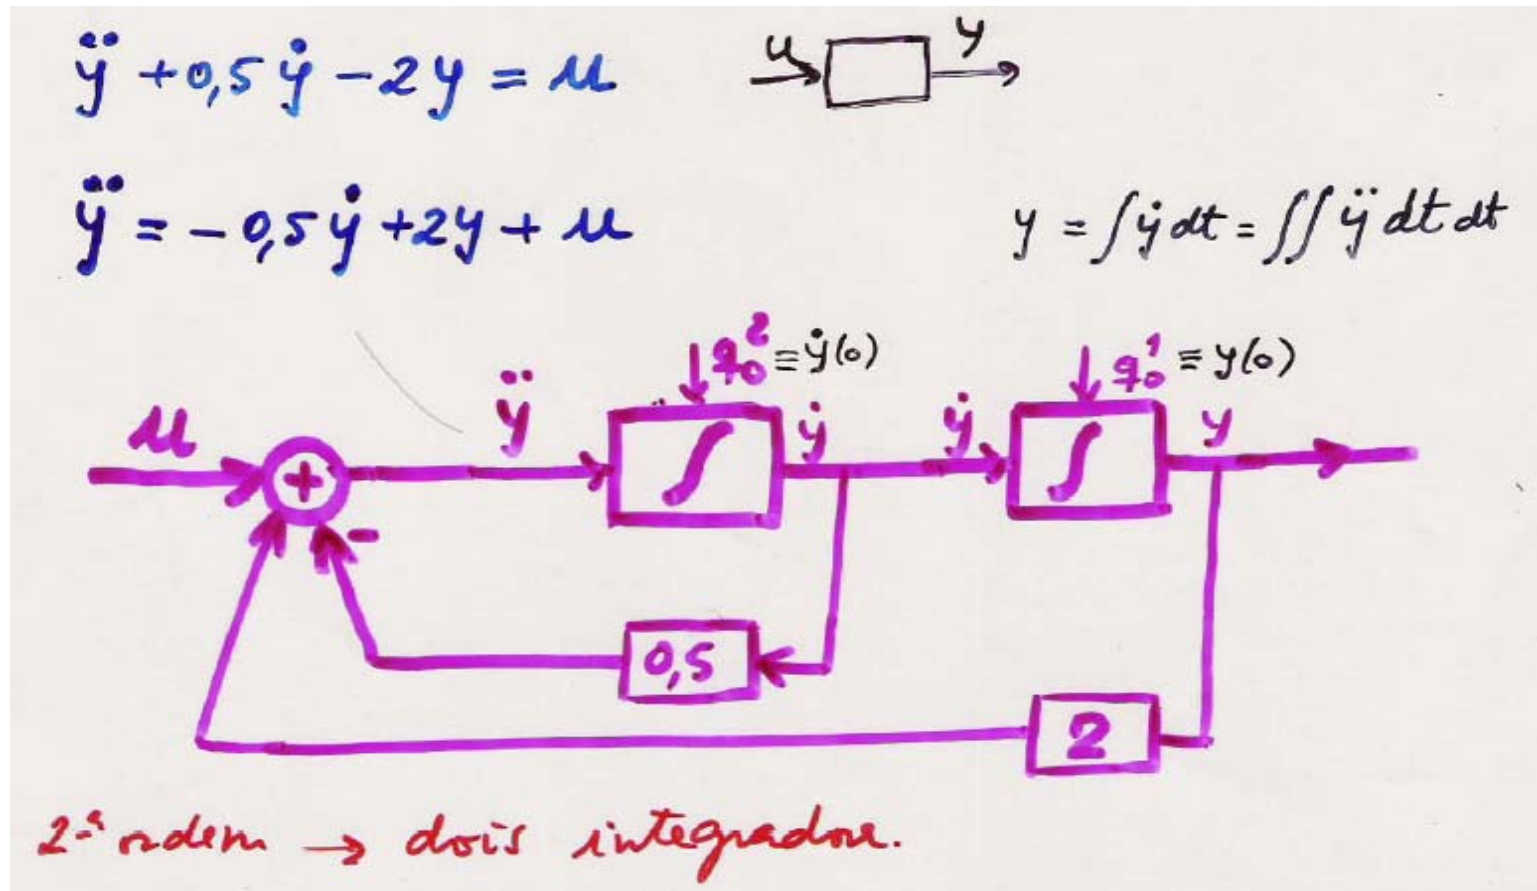 ÿ + 0,5 ẏ − 2y = u
u y
ÿ = − 0,5 ẏ + 2y + u
y = ∫ ẏ dt = ∫∫ ÿ dt dt
q₀² ≡ ẏ(0) q₀¹ ≡ y(0)
u + ÿ ∫ ẏ ẏ ∫ y
-
0,5
2
2ª ordem → dois integradore.